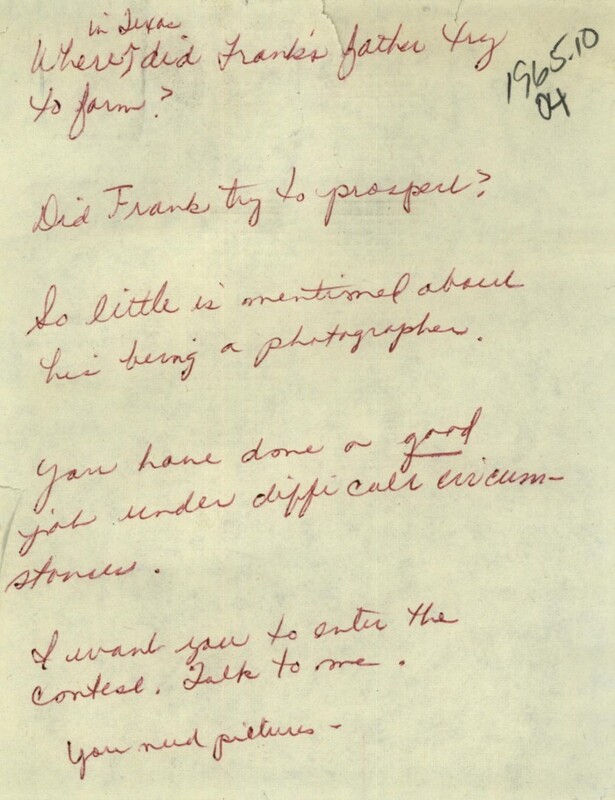 in Texas
Where did Frank's father try
to farm?
1965.10
04
Did Frank try to prospect?
So little is mentioned about
his being a photographer.
You have done a good
job under difficult circum-
stances.
I want you to enter the
contest. Talk to me.
You need pictures -